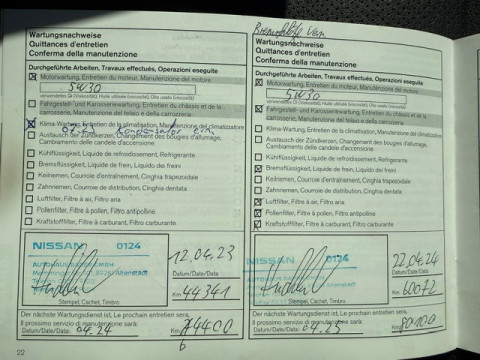 Wartungsnachweise
Quittances d'entretien
Conferma della manutenzione
Durchgeführte Arbeiten, Travaux effectués, Operazioni eseguite
Motorwartung, Entretien du moteur, Manutenzione del motore
5W30
verwendetes Öl (Viskosität), Huile utilisée (viscosité), Olio usato (viscosità)
Fahrgestell- und Karosseriewartung, Entretien du châssis et de la
carrosserie, Manutenzione del telaio e della carrozzeria
Klima-Wartung, Entretien de la climatisation, Manutenzione del climatizzatore
Austausch der Zündkerzen, Changement des bougies d'allumage,
Cambiamento delle candele d'accensione
Kühlflüssigkeit, Liquide de refroidissement, Refrigerante
Bremsflüssigkeit, Liquide de frein, Liquido per freni
Keilriemen, Courroie d'entraînement, Cinghia trapezoidale
Zahnriemen, Courroie de distribution, Cinghia dentata
Luftfilter, Filtre à air, Filtro aria
Pollenfilter, Filtre à pollen, Filtro antipolline
Kraftstofffilter, Filtre à carburant, Filtro carburante
NISSAN 0124
12.04.23
Datum/Date/Data
Km 44341
Stempel, Cachet, Timbro
Der nächste Wartungsdienst ist, Le prochain entretien sera,
Il prossimo servizio di manutenzione sarà:
04.24
Datum/Date/Data
Km
22
Wartungsnachweise
Quittances d'entretien
Conferma della manutenzione
Durchgeführte Arbeiten, Travaux effectués, Operazioni eseguite
Motorwartung, Entretien du moteur, Manutenzione del motore
5W30
verwendetes Öl (Viskosität), Huile utilisée (viscosité), Olio usato (viscosità)
Fahrgestell- und Karosseriewartung, Entretien du châssis et de la
carrosserie, Manutenzione del telaio e della carrozzeria
Klima-Wartung, Entretien de la climatisation, Manutenzione del climatizzatore
Austausch der Zündkerzen, Changement des bougies d'allumage,
Cambiamento delle candele d'accensione
Kühlflüssigkeit, Liquide de refroidissement, Refrigerante
Bremsflüssigkeit, Liquide de frein, Liquido per freni
Keilriemen, Courroie d'entraînement, Cinghia trapezoidale
Zahnriemen, Courroie de distribution, Cinghia dentata
Luftfilter, Filtre à air, Filtro aria
Pollenfilter, Filtre à pollen, Filtro antipolline
Kraftstofffilter, Filtre à carburant, Filtro carburante
NISSAN 0124
22.04.24
Datum/Date/Data
Km 60072
Stempel, Cachet, Timbro
Der nächste Wartungsdienst ist, Le prochain entretien sera,
Il prossimo servizio di manutenzione sarà:
Datum/Date/Data
Km